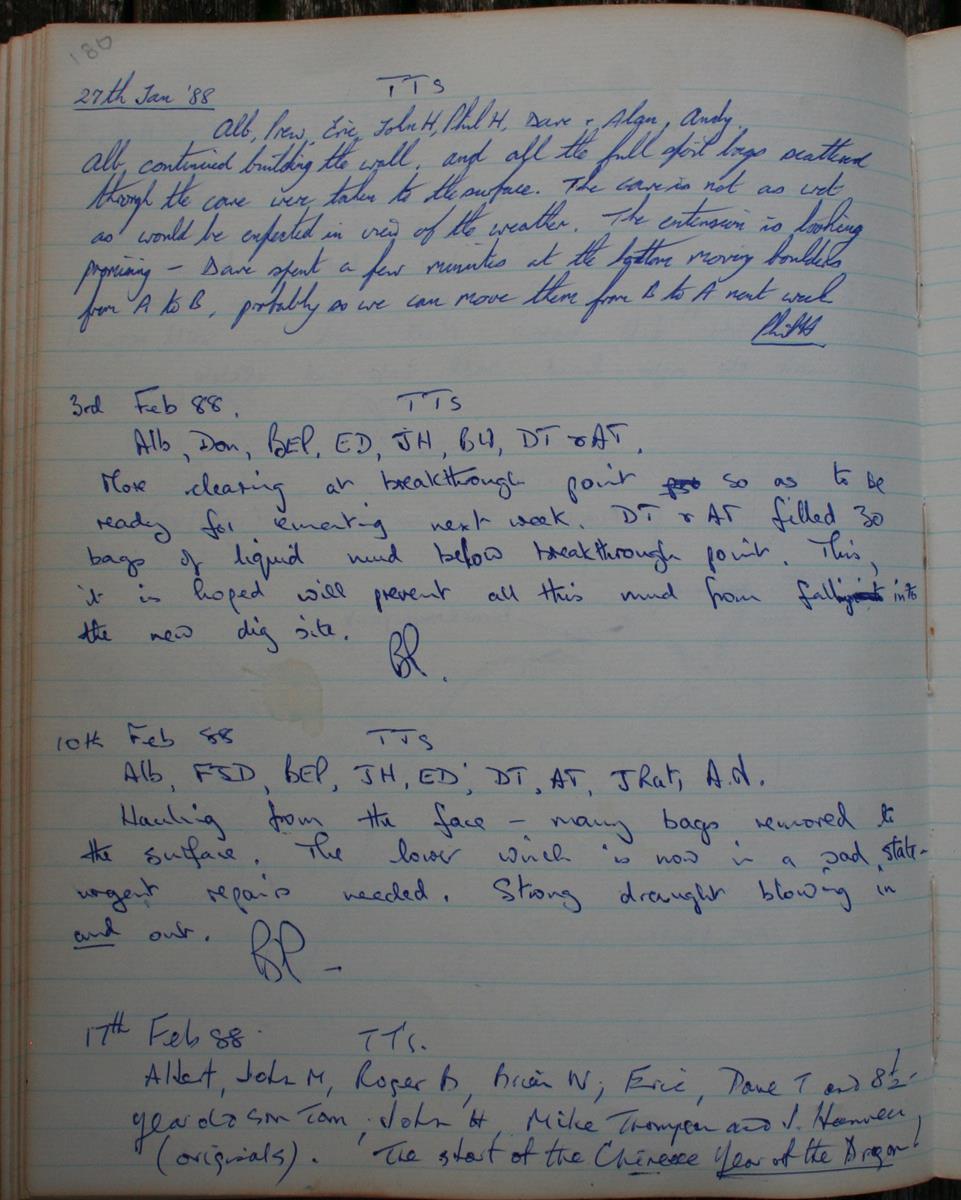 180
27th Jan '88 TTS
Alb, Prew, Eric, John H, Phil H, Dave & Alan, Andy.
Alb, continued building the wall, and all the full spoil bags scattered
through the cave were taken to the surface. The cave is not as wet
as would be expected in view of the weather. The extension is looking
promising - Dave spent a few minutes at the bottom moving boulders
from A to B, probably so we can move them from B to A next week
Phil H
3rd Feb 88. TTS
Alb, Don, BEP, ED, JH, BW, DT & AT.
More clearing at breakthrough point so as to be
ready for cementing next week. DT & AT filled 30
bags of liquid mud below breakthrough point. This,
it is hoped will prevent all this mud from falling into
the new dig site.
BP.
10th Feb 88 TTS
Alb, FSD, BEP, JH, ED, DT, AT, JRat,
Hauling from the face - many bags removed to
the surface. The lower winch is now in a sad state -
urgent repairs needed. Strong draught blowing in
and out.
BP -
17th Feb 88. TTS.
Albert, John M, Roger D, Brian W, Eric, Dave T and 8½-
year old son Tom, John H, Mike Thompson and J. Hanwell
(originals). The start of the Chinese Year of the Dragon!